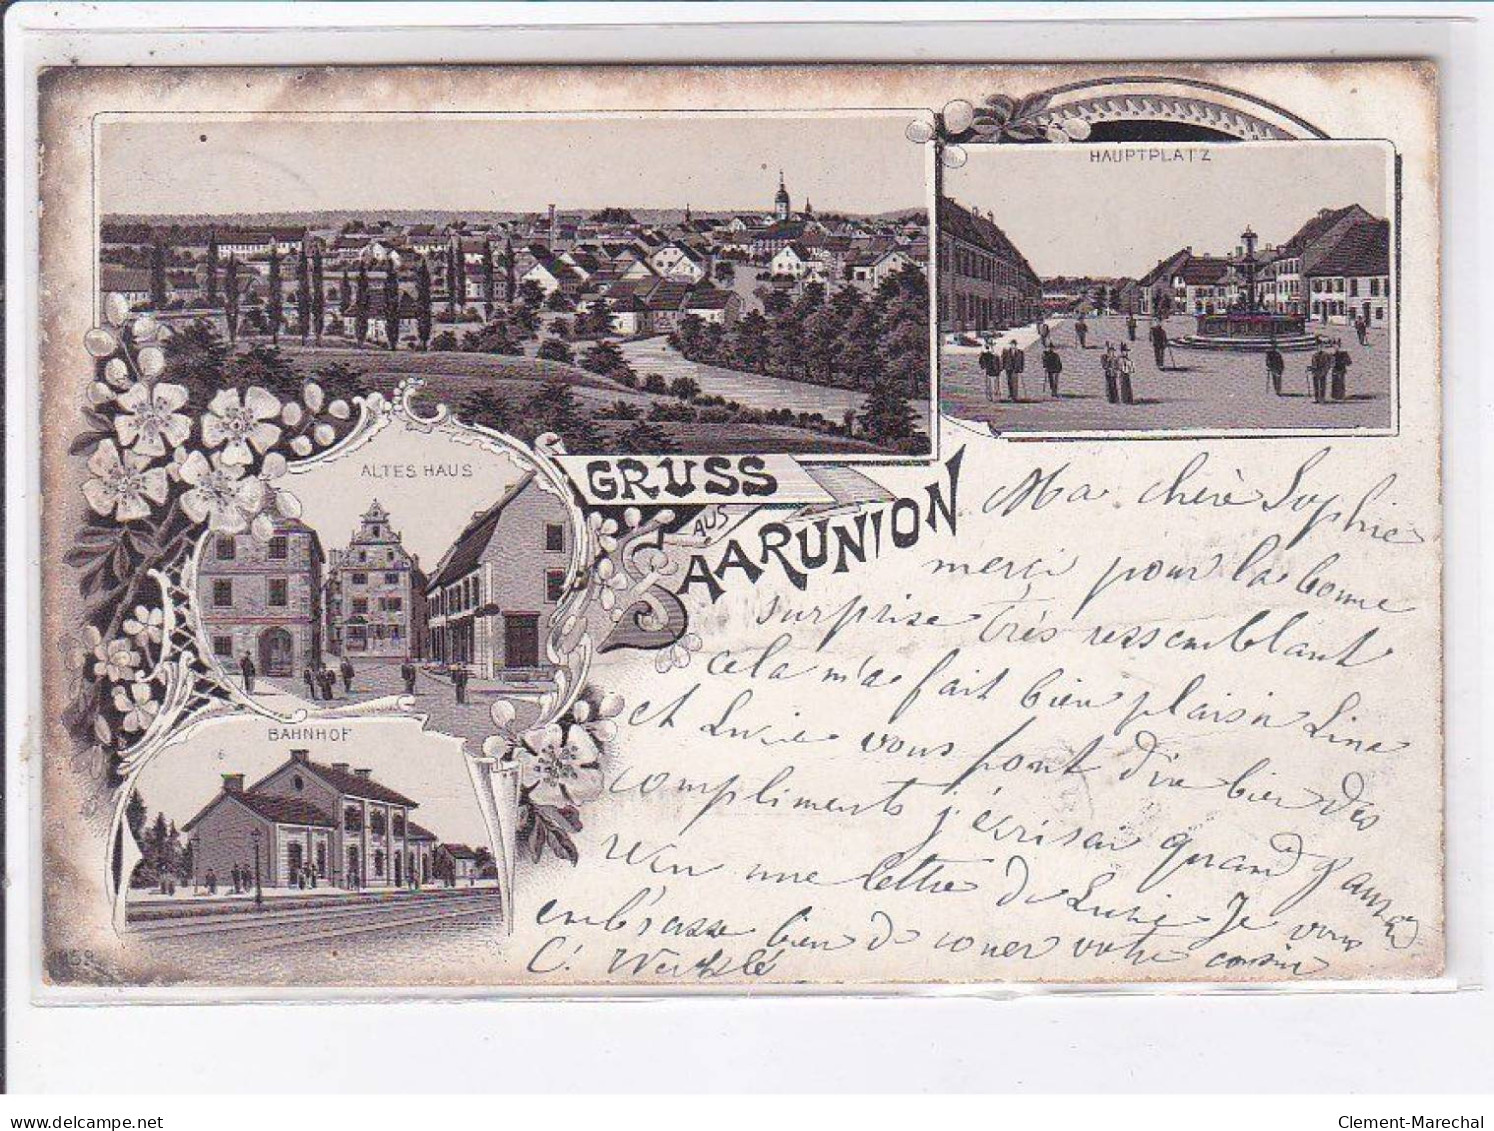 HAUPTPLATZ
ALTES HAUS
GRUSS
AUS
SAARUNION
BAHNHOF
Ma chère Sophie
merçi pour la bonne
surprise très ressemblant
cela m'a fait bien plaisir Line
et Lucie vous font dire bien des
compliments j'écrirai quand j'aurai
reçu une lettre de Lucie Je vous
embrasse bien de coeur votre cousine
C.
delcampe.net
Clement-Marechal